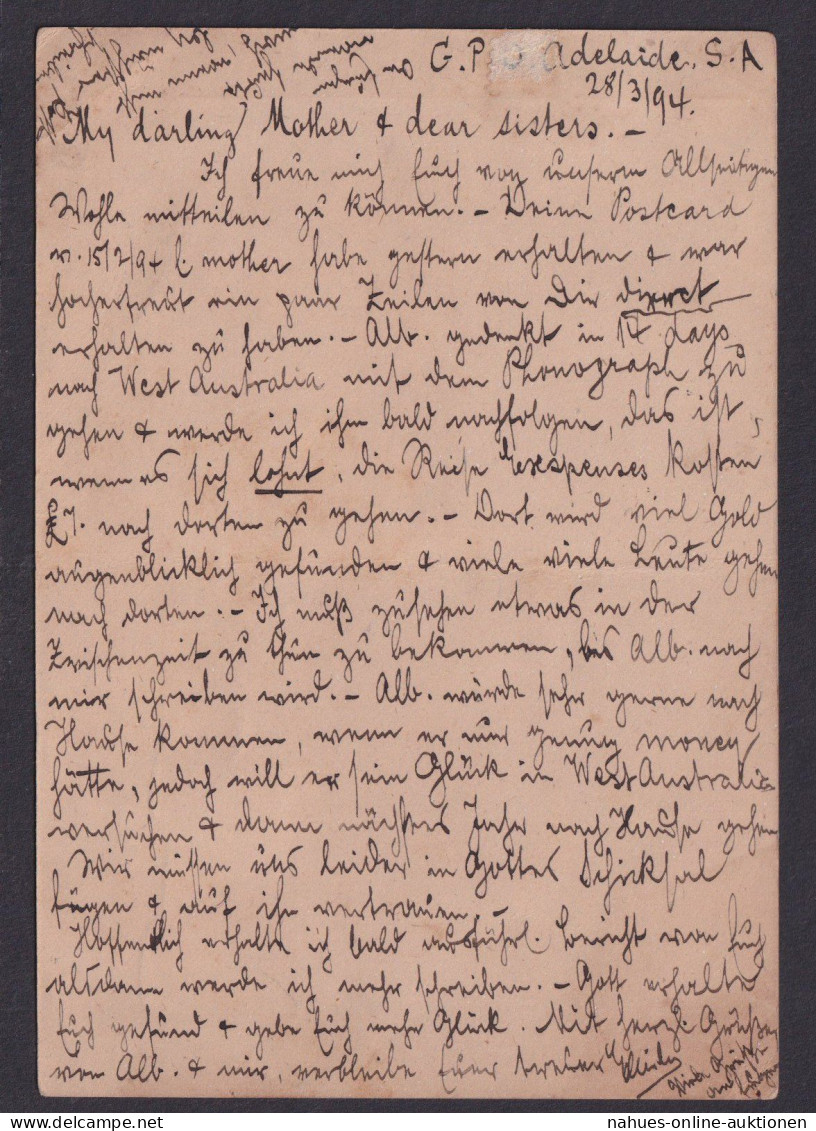 G.P.O Adelaide. S.A
28/3/94.
My darling Mother & dear sisters. -
Ich freue mich Euch von unserm Allseitigen
Wohle mitteilen zu können. - Deine Postcard
v. 15/2/94 l. mother habe gestern erhalten & war
hocherfreut ein paar Zeilen von Dir direct
erhalten zu haben. - Alb. gedenkt in 14 days
nach West Australia mit dem Phonograph zu
gehen & werde ich ihm bald nachfolgen, das ist,
wenn es sich lohnt, die Reise Exespenses kosten
£7. nach dorten zu gehen. - Dort wird viel Gold
augenblicklich gefunden & viele viele Leute gehen
nach dorten. - Ich muß zusehen etwas in der
Zwischenzeit zu thun zu bekommen, bis Alb. nach
mir schreiben wird. - Alb. würde sehr gerne nach
Hause kommen, wenn er nur genug money
hätte, jedoch will er sein Glück in West Australia
versuchen & dann nächstes Jahr nach Hause gehen
Wir müssen uns leider in Gottes Schicksal
fügen & auf ihn vertrauen. -
Hoffentlich erhalte ich bald ausführl. Bericht von Euch
alsdann werde ich mehr schreiben. - Gott erhalte
Euch gesund & gebe Euch mehr Glück. Mit herzl. Grüßen
von Alb. & mir, verbleibe Euer treuer
nahues-online-auktionen